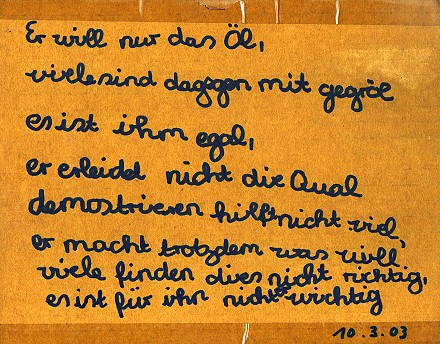 Er will nur das Öl,
viele sind dagegen mit gegröl
es ist ihm egal,
er erleidet nicht die Qual
demostrieren hilft nicht viel,
er macht trotzdem was will
viele finden dies nicht richtig,
es ist für ihn nicht wichtig
10.3.03